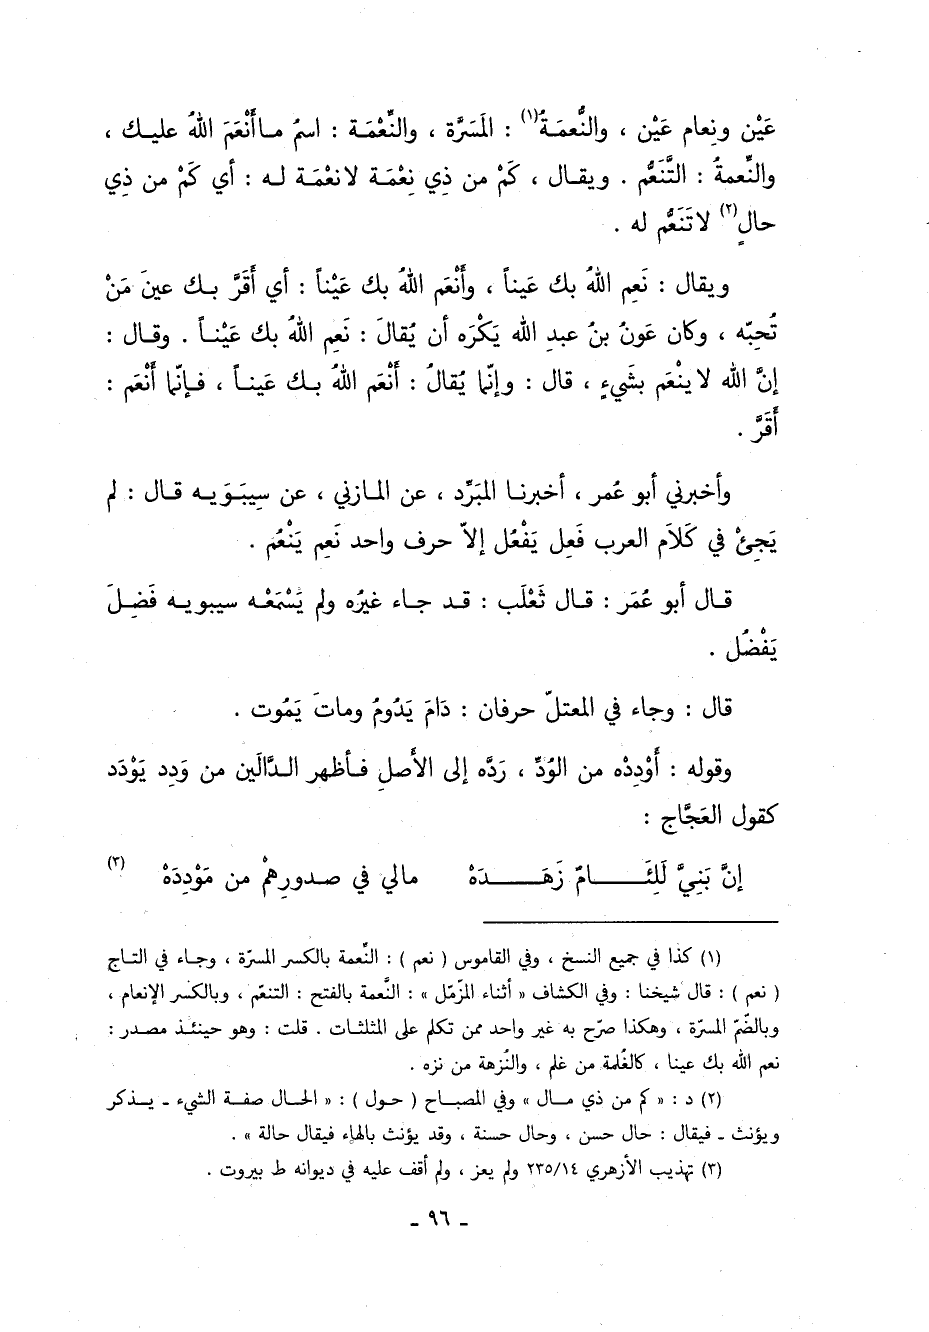 عَيْن ونِعام عَيْن ، والنُّعمَةُ(١) : المَسَرَّة ، والنِّعْمَة : اسمُ ما أَنْعَمَ اللهُ عليك ،
والنِّعمةُ : التَّنَعُّم . ويقال ، كَمْ من ذي نِعْمَة لا نعْمَة له : أي كَمْ من ذِي
حالٍ(٢) لا تَنَعُّم له .
ويقال : نَعِم اللهُ بك عَيناً ، وأَنْعَم اللهُ بك عَيْناً : أي أَقَرَّ بك عينَ مَنْ
تُحِبّه ، وكان عَونُ بنُ عبدِ الله يَكْرَه أن يُقالَ : نَعِم اللهُ بك عَيْناً . وقال :
إنَّ الله لا ينْعَم بشَيءٍ ، قال : وإنّما يُقالُ : أَنْعَم اللهُ بك عَيناً ، فإنّما أَنْعَم :
أَقَرَّ .
وأخبرني أبو عُمر ، أخبرنا المبَرِّد ، عن المازني ، عن سِيبَوَيه قال : لم
يَجِئْ في كَلاَم العرب فَعِل يَفْعُل إلاّ حرف واحد نَعِم يَنْعُم .
قال أبو عُمَر : قال ثَعْلَب : قد جاء غيرُه ولم يَسْمَعْه سيبويه فَضِلَ
يَفْضُل .
قال : وجاء في المعتلّ حرفان : دَامَ يَدُومُ وماتَ يَمُوت .
وقوله : أَوْدِدْه من الوُدِّ ، رَدَّه إلى الأَصلِ فأظهر الدَّالَين من وَدِد يَوْدَد
كقول العَجَّاج :
إنَّ بَنِيَّ لَلِئَامٌ زَهَدَهْ مالي في صدورِهمْ من مَوْدِدَهْ (٣)
(١) كذا في جميع النسخ ، وفي القاموس ( نعم ) : النِّعمة بالكسر المسرّة ، وجاء في التاج
( نعم ) : قال شيخنا : وفي الكشاف « أثناء المزّمّل » : النَّعمة بالفتح : التنعّم ، وبالكسر الإنعام ،
وبالضّمّ المسرّة ، وهكذا صرّح به غير واحد ممن تكلم على المثلثات . قلت : وهو حينئذ مصدر :
نعم الله بك عينا ، كالغُلمة من غلم ، والنُزهة من نزه .
(٢) د : « كم من ذي مال » وفي المصباح ( حول ) : « الحال صفة الشيء ـ يذكر
ويؤنث ـ فيقال : حال حسن ، وحال حسنة ، وقد يؤنث بالهاء فيقال حالة » .
(٣) تهذيب الأزهري ٢٣٥/١٤ ولم يعز ، ولم أقف عليه في ديوانه ط بيروت .
ـ ٩٦ ـ